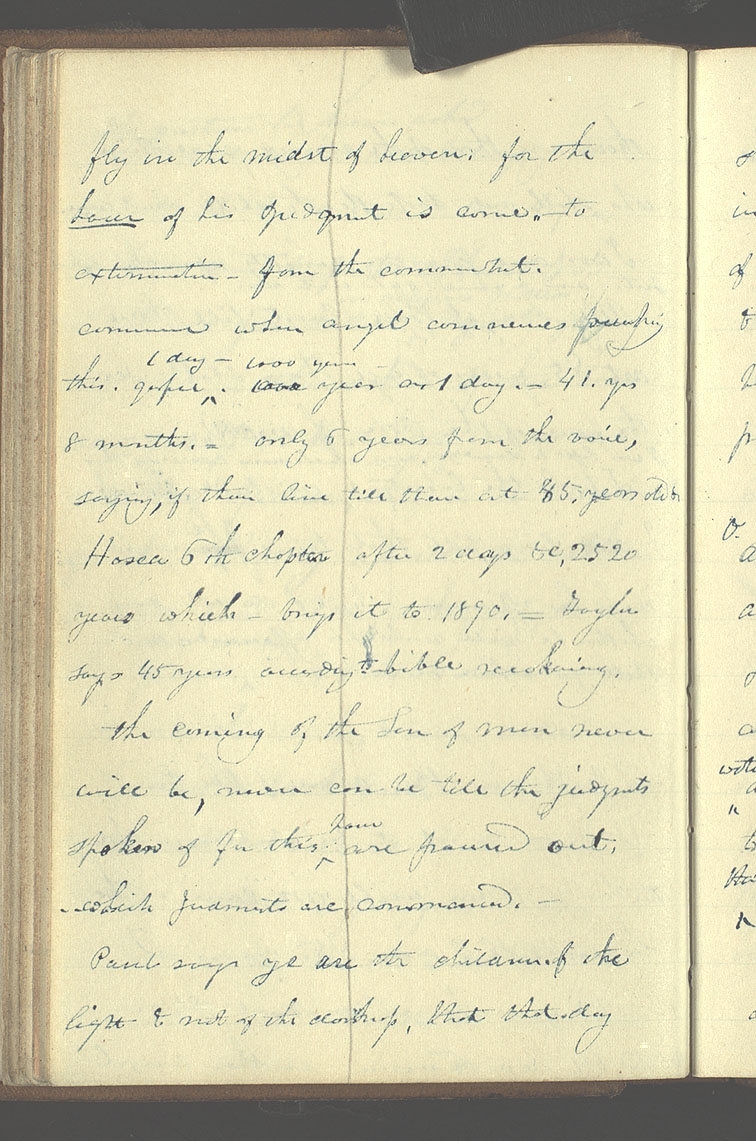 fly in the midst of heaven: for the
hour of his Judgmut is come,, - to
extermination - from the commenhmt.
commence when angel commences preaching
1 day - 1000 years
this. gospel. 1000 year as 1 day. - 41. yrs
8 months. = only 6 years from the voice,
saying, if thou live till thou art 85, years old &
Hosea 6th chapter after 2 days &c, 2520
years which - brigs it to 1890. = Taylor
says 45 years accordig to bible reckoning.
the coming of the Son of man never
will be, never can be till the judgmts
hour
spoken of for this are poured out,
which Judments are commenced. -
Paul says ye are the children of the
light & not of the darkness, that that day